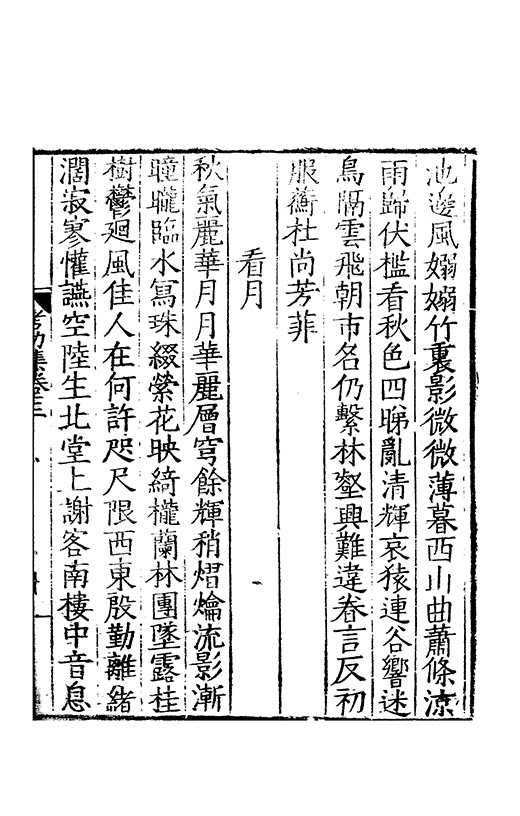 池邊風嫋嫋竹裏影微微薄暮西山曲蕭條凉
雨歸伏檻看秋色四睇亂清輝哀猿連谷響迷
鳥隔雲飛朝市名仍繫林壑興難違眷言反初
服蘅杜尚芳菲
看月
秋氣麗華月月華麗層穹餘輝稍熠爚流影漸
曈曨臨水寫珠綴縈花映綺櫳蘭林團墜露桂
樹鬱廻風佳人在何許咫尺限西東殷勤離緒
濶寂寥懽讌空陸生北堂上謝客南樓中音息
考功集卷三